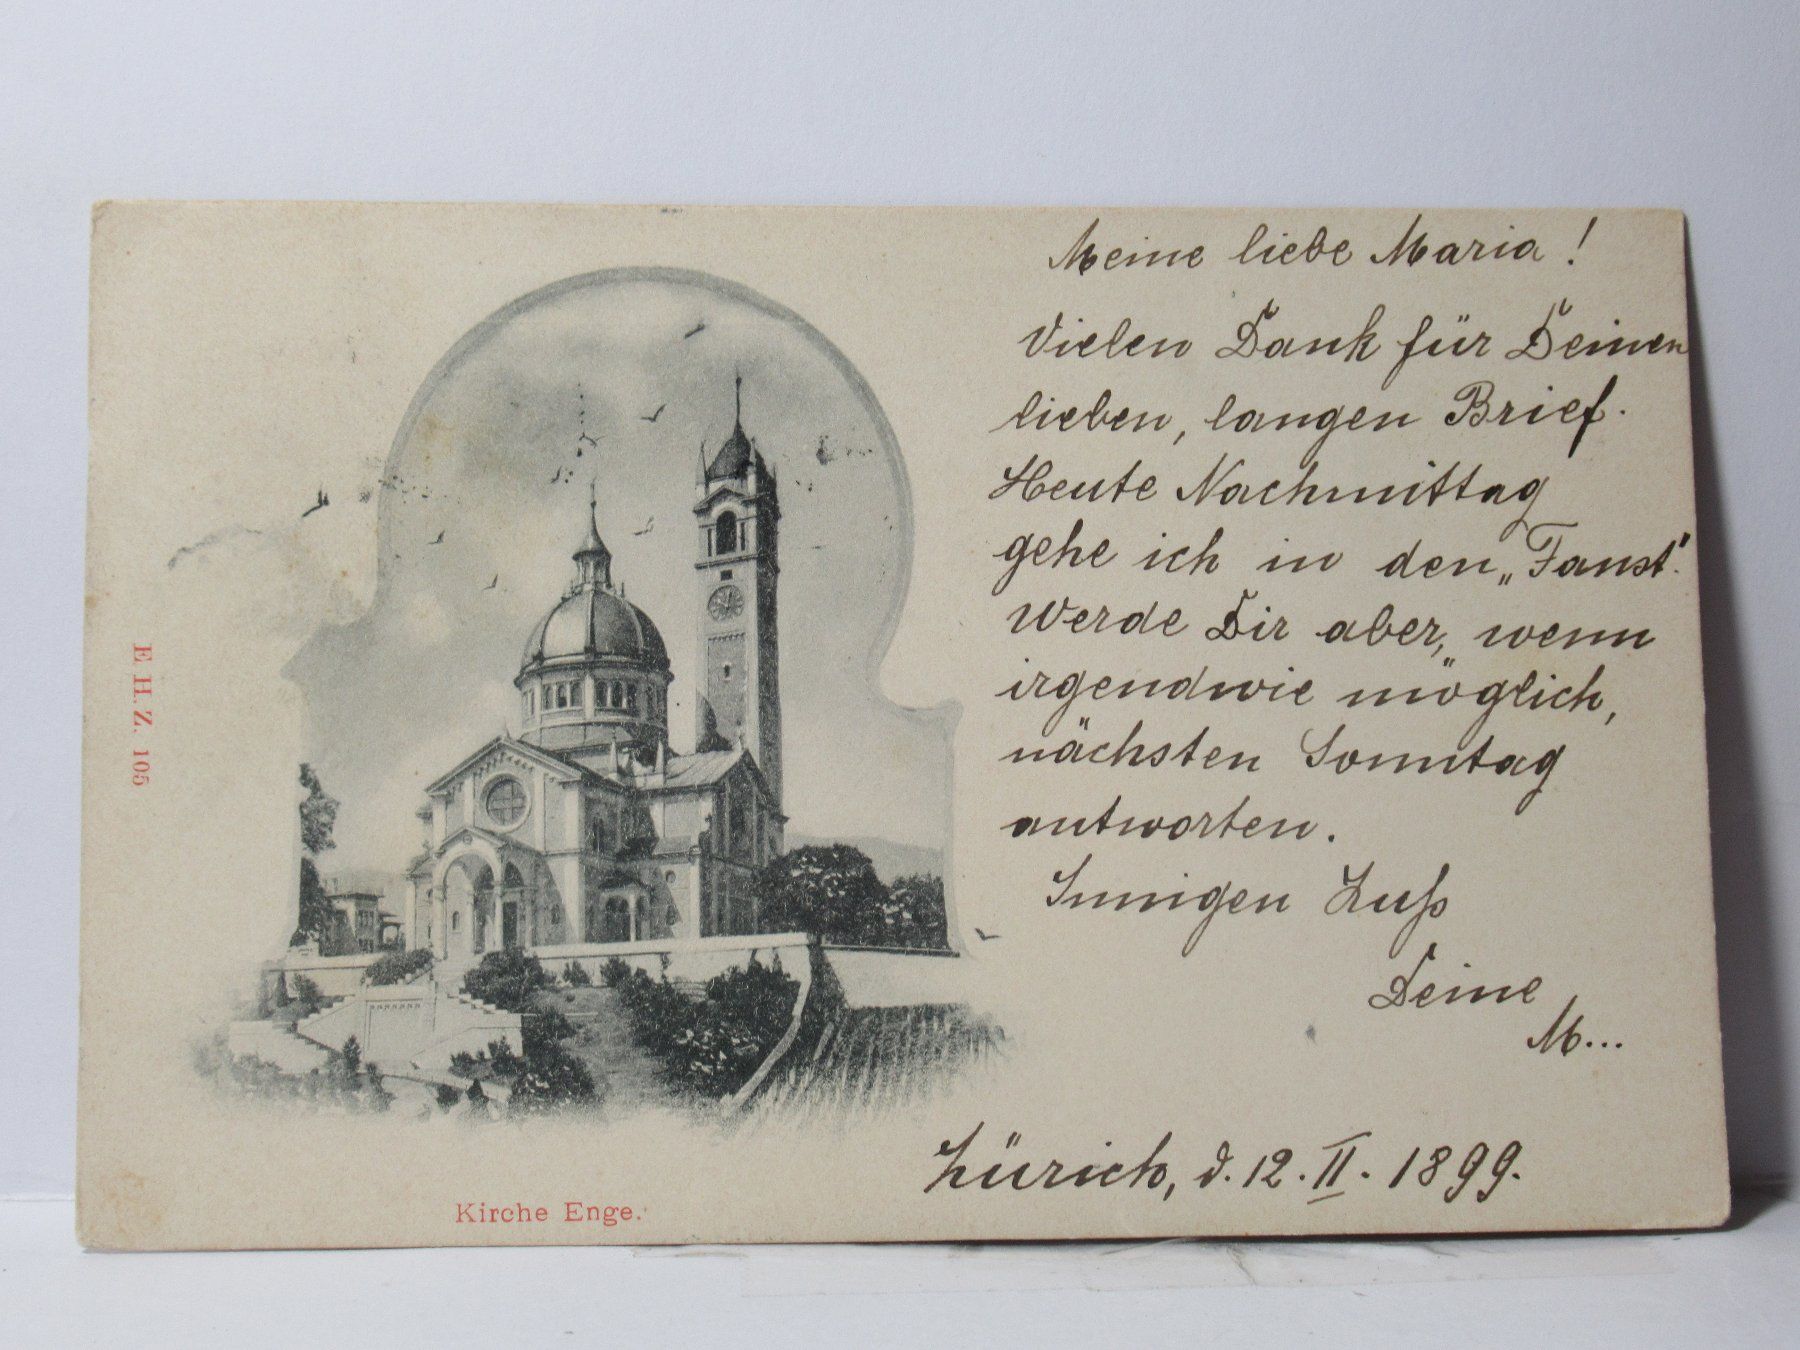 Meine liebe Maria!
Vielen Dank für Deinen
lieben, langen Brief.
Heute Nachmittag
gehe ich in den „Faust".
Werde Dir aber, wenn
irgendwie möglich,
nächsten Sonntag
antworten.
Innigen Kuß
Deine
M...
Zürich, d. 12. II. 1899.
Kirche Enge.
E. H. Z. 105